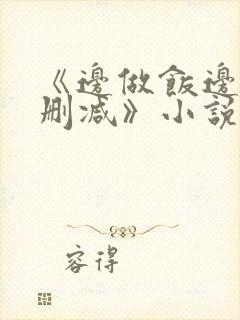 《邊做飯邊
刪減》小說
容得